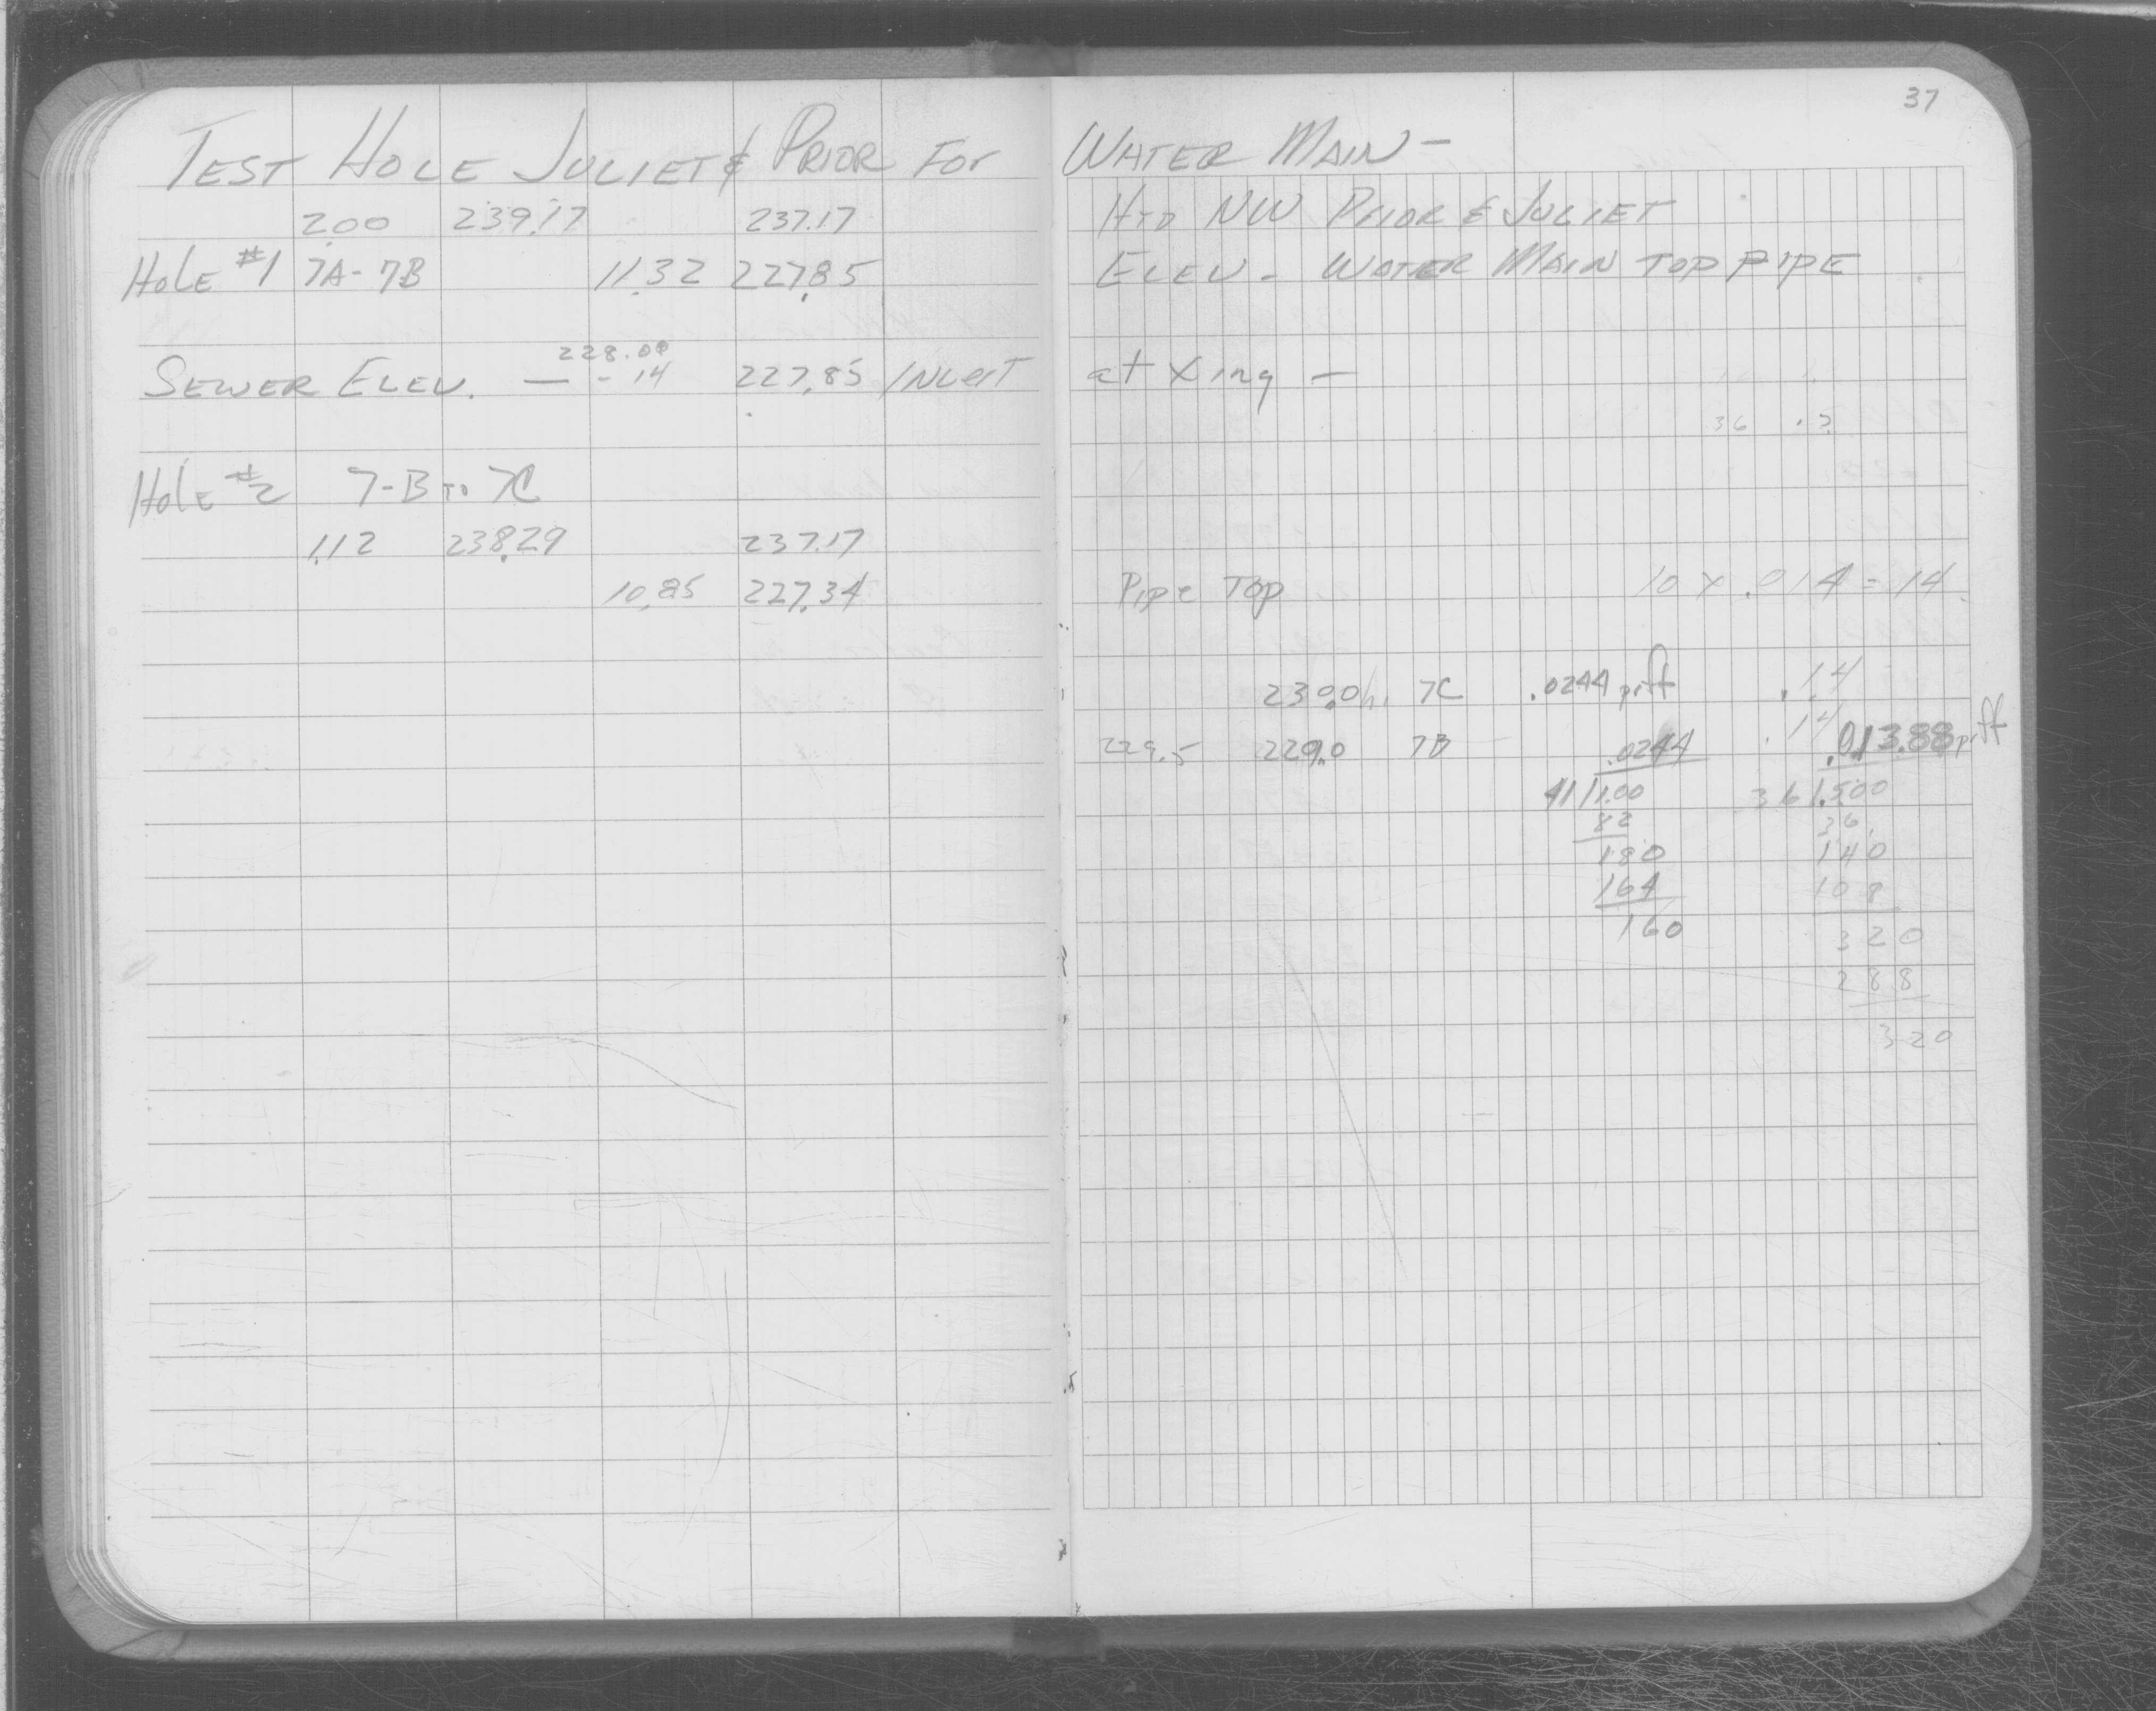 37
TEST HOLE JULIET & PRIOR FOR WATER MAIN -
2.00 239.17 237.17 HYD NW PRIOR & JULIET
HOLE #1 7A-7B 11.32 227.85 ELEV - WATER MAIN TOP PIPE
228.00
SEWER ELEV. — - 14 227.85 INVERT at Xing -
36 .5
HOLE #2 7-B TO 7C
1.12 238.29 237.17
10.85 227.34 Pipe Top 10 x .014 = 14
230.0 7C .0244 pr ft .14
229.5 229.0 7B .0244 .14 .013.88 pr ft
41/1.00 36/.500
82 36
180 140
164 108
160 320
288
320